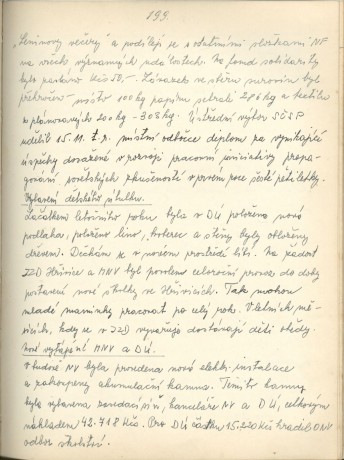 199.
"Leninovy večery" a podílejí se s ostatními složkami NF
na všech významných událostech. Na fond solidarity
bylo darováno Kčs 50,-. Závazek ve sběru surovin byl
překročen - místo 100 kg papíru sebrali 286 kg a textilu
z plánovaných 200 kg - 308 kg. Ústřední výbor SČSP
udělil 15.11. t.r. místní odbočce diplom za vynikající
úspěchy dosažené v rozvoji pracovní iniciativy propa-
gování sovětských zkušeností v prvém roce šesté pětiletky.
Vybavení dětského útulku.
Začátkem letošního roku byla v DÚ položena nová
podlaha, položeno lino, koberec a stěny byly obloženy
dřevem. Dětkám se v novém prostředí líbí. Na žádost
JZD Hřivice a MNV byl povolen celoroční provoz do doby
postavení nové školky ve Hřivicích. Tak mohou
mladé maminky pracovat po celý rok. V letních mě-
sících, kdy se v JZD vyvařuje dostávají děti obědy.
Nové vytápění MNV a DÚ.
V budově NV byla provedena nová elektr. instalace
a zakoupeny akumulační kamna. Těmito kamny
byla vybavena zasedací síň, kanceláře NV a DÚ, celkovým
nákladem 42.718 Kčs. Pro DÚ částku 15.220 Kčs hradil ONV
odbor školství.